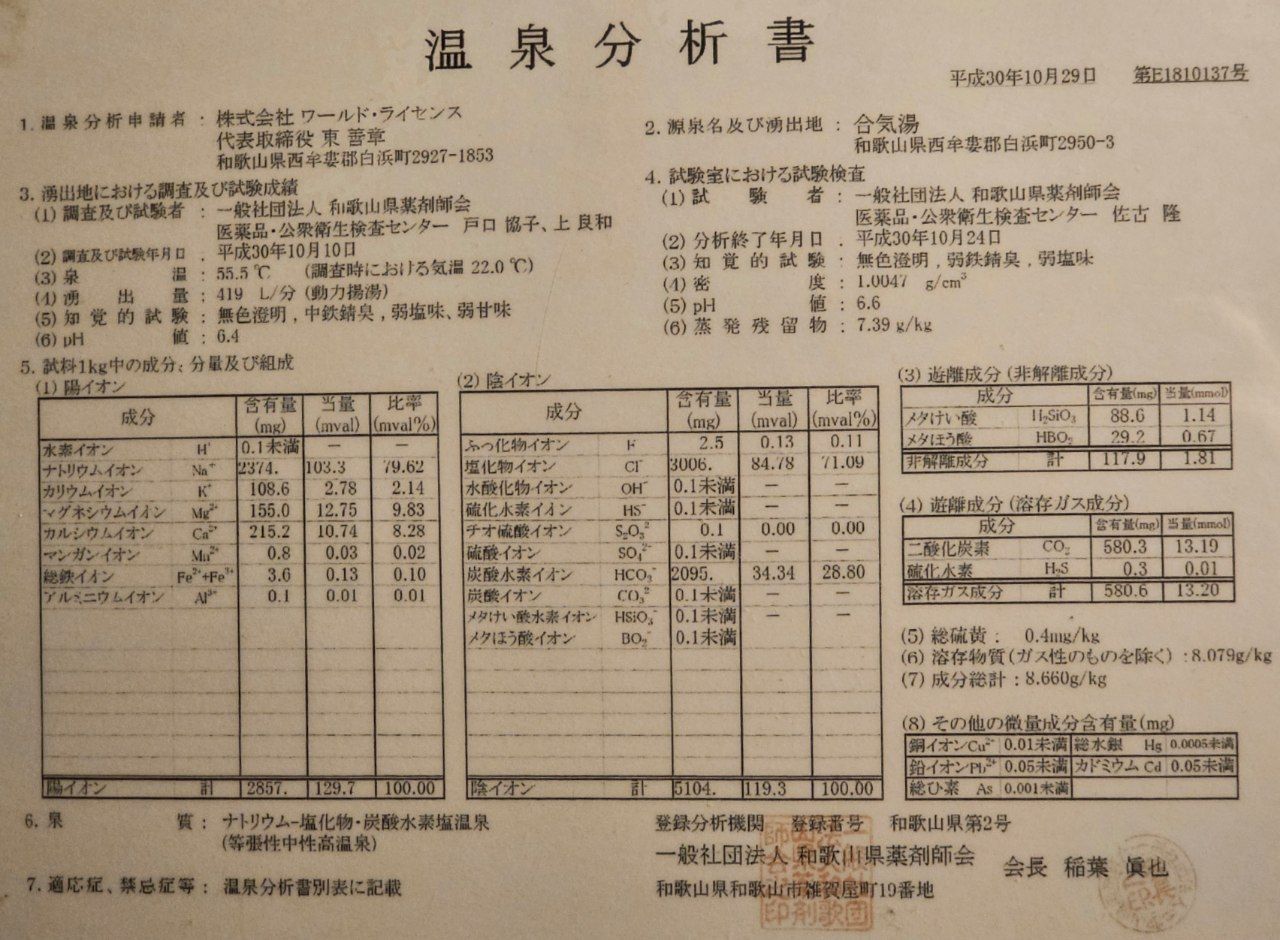 温泉分析書
平成30年10月29日 第E1810137号
1. 温泉分析申請者 : 株式会社 ワールド・ライセンス
代表取締役 東 善章
和歌山県西牟婁郡白浜町2927-1853
2. 源泉名及び湧出地 : 合気湯
和歌山県西牟婁郡白浜町2950-3
3. 湧出地における調査及び試験成績
(1) 調査及び試験者 : 一般社団法人 和歌山県薬剤師会
医薬品・公衆衛生検査センター 戸口 協子、上 良和
(2) 調査及び試験年月日 : 平成30年10月10日
(3) 泉温 : 55.5 ℃ (調査時における気温 22.0 ℃)
(4) 湧出量 : 419 L/分 (動力揚湯)
(5) 知覚的試験 : 無色澄明 , 中鉄錆臭 , 弱塩味、弱甘味
(6) pH値 : 6.4
4. 試験室における試験検査
(1) 試験者 : 一般社団法人 和歌山県薬剤師会
医薬品・公衆衛生検査センター 佐古 隆
(2) 分析終了年月日 : 平成30年10月24日
(3) 知覚的試験 : 無色澄明 , 弱鉄錆臭 , 弱塩味
(4) 密度 : 1.0047 g/cm³
(5) pH値 : 6.6
(6) 蒸発残留物 : 7.39 g/kg
5. 試料1kg中の成分、分量及び組成
(1) 陽イオン
成分 含有量(mg) 当量(mval) 比率(mval%)
水素イオン H⁺ 0.1未満 − −
ナトリウムイオン Na⁺ 2374. 103.3 79.62
カリウムイオン K⁺ 108.6 2.78 2.14
マグネシウムイオン Mg²⁺ 155.0 12.75 9.83
カルシウムイオン Ca²⁺ 215.2 10.74 8.28
マンガンイオン Mn²⁺ 0.8 0.03 0.02
総鉄イオン Fe²⁺+Fe³⁺ 3.6 0.13 0.10
アルミニウムイオン Al³⁺ 0.1 0.01 0.01
陽イオン 計 2857. 129.7 100.00
(2) 陰イオン
成分 含有量(mg) 当量(mval) 比率(mval%)
ふっ化物イオン F⁻ 2.5 0.13 0.11
塩化物イオン Cl⁻ 3006. 84.78 71.09
水酸化物イオン OH⁻ 0.1未満 − −
硫化水素イオン HS⁻ 0.1未満 − −
チオ硫酸イオン S₂O₃²⁻ 0.1 0.00 0.00
硫酸イオン SO₄²⁻ 0.1未満 − −
炭酸水素イオン HCO₃⁻ 2095. 34.34 28.80
炭酸イオン CO₃²⁻ 0.1未満 − −
メタけい酸水素イオン HSiO₃⁻ 0.1未満 − −
メタほう酸イオン BO₂⁻ 0.1未満
陰イオン 計 5104. 119.3 100.00
(3) 遊離成分 (非解離成分)
成分 含有量(mg) 当量(mmol)
メタけい酸 H₂SiO₃ 88.6 1.14
メタほう酸 HBO₂ 29.2 0.67
非解離成分 計 117.9 1.81
(4) 遊離成分 (溶存ガス成分)
成分 含有量(mg) 当量(mmol)
二酸化炭素 CO₂ 580.3 13.19
硫化水素 H₂S 0.3 0.01
溶存ガス成分 計 580.6 13.20
(5) 総硫黄 : 0.4mg/kg
(6) 溶存物質 (ガス性のものを除く) : 8.079g/kg
(7) 成分総計 : 8.660g/kg
(8) その他の微量成分含有量 (mg)
銅イオンCu²⁺ 0.01未満 総水銀 Hg 0.0005未満
鉛イオンPb²⁺ 0.05未満 カドミウム Cd 0.05未満
総ひ素 As 0.001未満
6. 泉質 : ナトリウム−塩化物・炭酸水素塩温泉
(等張性中性高温泉)
7. 適応症、禁忌症等 : 温泉分析書別表に記載
登録分析機関 登録番号 和歌山県第2号
一般社団法人 和歌山県薬剤師会 会長 稲葉 眞也
和歌山県和歌山市雑賀屋町19番地